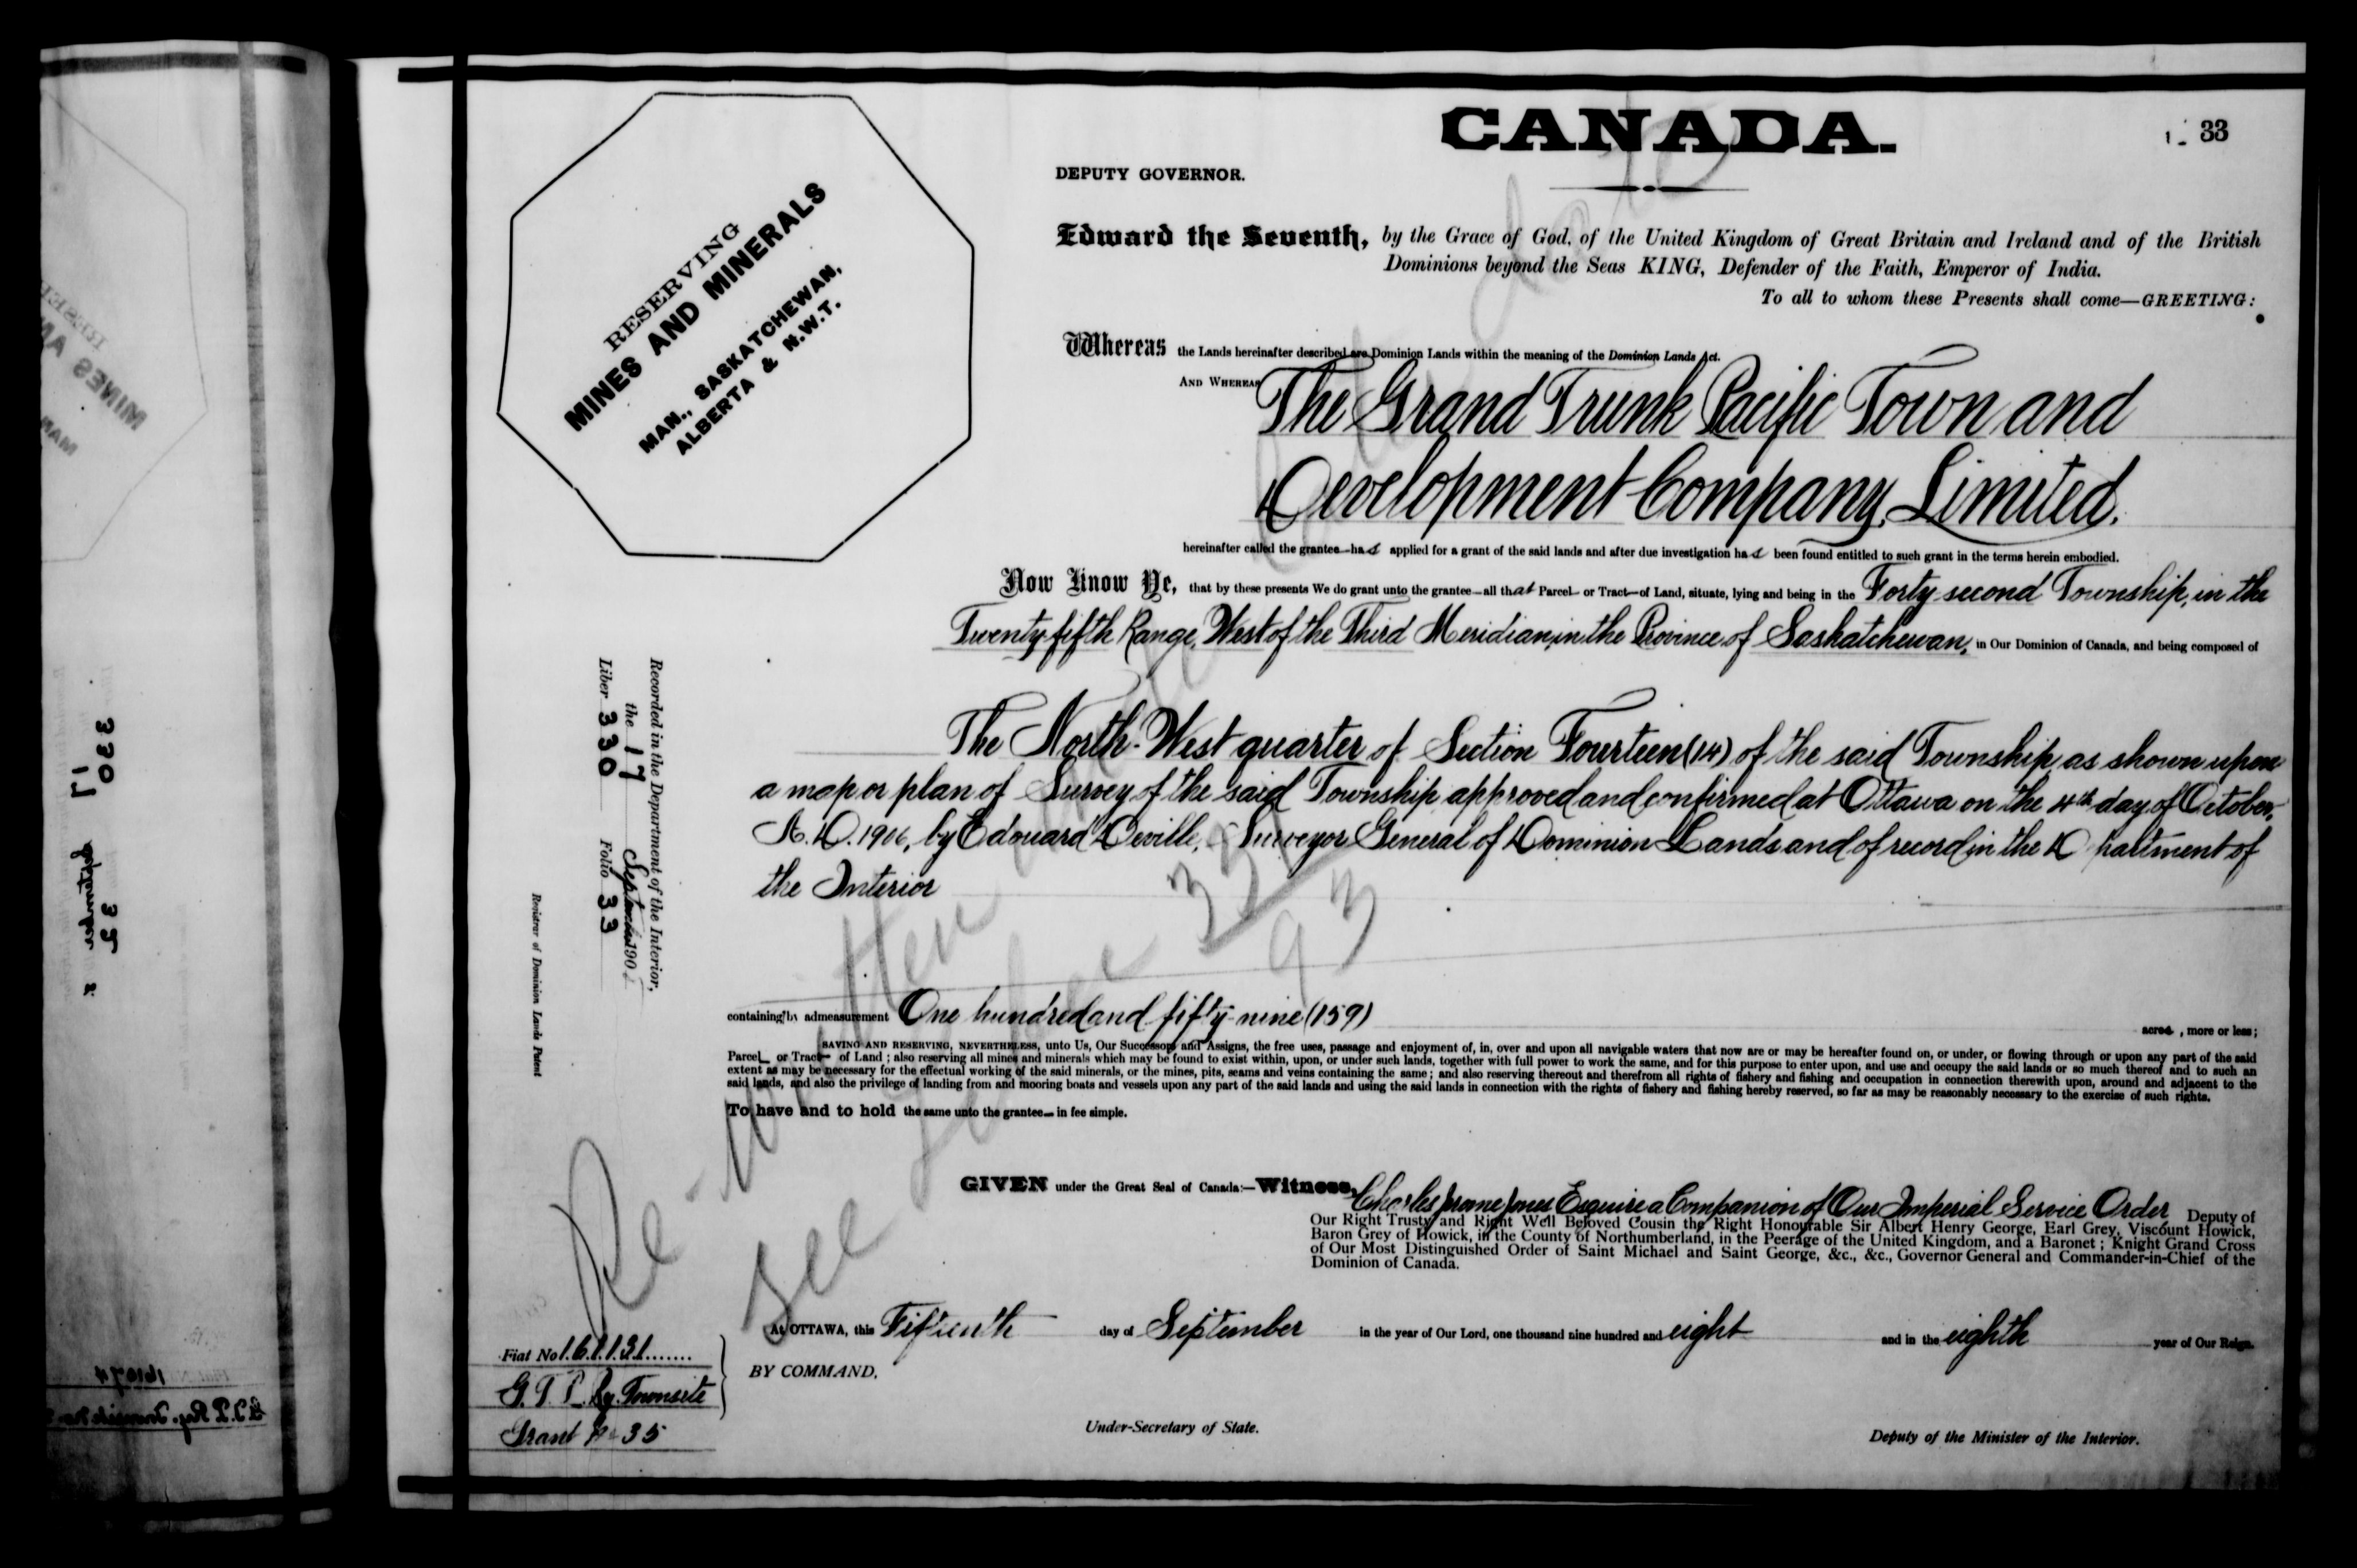 CANADA.
33
DEPUTY GOVERNOR.
RESERVING
MINES AND MINERALS
MAN., SASKATCHEWAN,
ALBERTA & N.W.T.
Edward the Seventh, by the Grace of God, of the United Kingdom of Great Britain and Ireland and of the British
Dominions beyond the Seas KING, Defender of the Faith, Emperor of India.
To all to whom these Presents shall come—GREETING:
Whereas the Lands hereinafter described are Dominion Lands within the meaning of the Dominion Lands Act.
AND WHEREAS The Grand Trunk Pacific Town and
Development Company, Limited.
hereinafter called the grantee—has applied for a grant of the said lands and after due investigation has been found entitled to such grant in the terms herein embodied.
Now Know Ye, that by these presents We do grant unto the grantee—all that Parcel— or Tract—of Land, situate, lying and being in the Forty second Township, in the
Twenty fifth Range, West of the Third Meridian, in the Province of Saskatchewan, in Our Dominion of Canada, and being composed of
The North-West quarter of Section Fourteen (14) of the said Township as shown upon
a map or plan of Survey of the said Township approved and confirmed at Ottawa on the 4th day of October,
A.D. 1906, by Edouard Deville, Surveyor General of Dominion Lands and of record in the D partment of
the Interior
containing by admeasurement One hundred and fifty-nine (159) acres, more or less;
SAVING AND RESERVING, NEVERTHELESS, unto Us, Our Successors and Assigns, the free uses, passage and enjoyment of, in, over and upon all navigable waters that now are or may be hereafter found on, or under, or flowing through or upon any part of the said
Parcel— or Tract— of Land; also reserving all mines and minerals which may be found to exist within, upon, or under such lands, together with full power to work the same, and for this purpose to enter upon, and use and occupy the said lands or so much thereof and to such an
extent as may be necessary for the effectual working of the said minerals, or the mines, pits, seams and veins containing the same; and also reserving thereout and therefrom all rights of fishery and fishing and occupation in connection therewith upon, around and adjacent to the
said lands, and also the privilege of landing from and mooring boats and vessels upon any part of the said lands and using the said lands in connection with the rights of fishery and fishing hereby reserved, so far as may be reasonably necessary to the exercise of such rights.
To have and to hold the same unto the grantee— in fee simple.
GIVEN under the Great Seal of Canada:—Witness, Charles Jrome Jones Esquire a Companion of Our Imperial Service Order Deputy of
Our Right Trusty and Right Well Beloved Cousin the Right Honourable Sir Albert Henry George, Earl Grey, Viscount Howick,
Baron Grey of Howick, in the County of Northumberland, in the Peerage of the United Kingdom, and a Baronet; Knight Grand Cross
of Our Most Distinguished Order of Saint Michael and Saint George, &c., &c., Governor General and Commander-in-Chief of the
Dominion of Canada.
At OTTAWA, this Fifteenth day of September in the year of Our Lord, one thousand nine hundred and eight and in the eighth year of Our Reign.
BY COMMAND,
Under-Secretary of State.
Deputy of the Minister of the Interior.
Fiat No 161131
G.T.P. Ry. Townsite
Grant No 35
Recorded in the Department of the Interior,
the 17 September 190
Liber 330 Folio 33
Registrar of Dominion Lands Patent
Re-written
see Liber 331
93